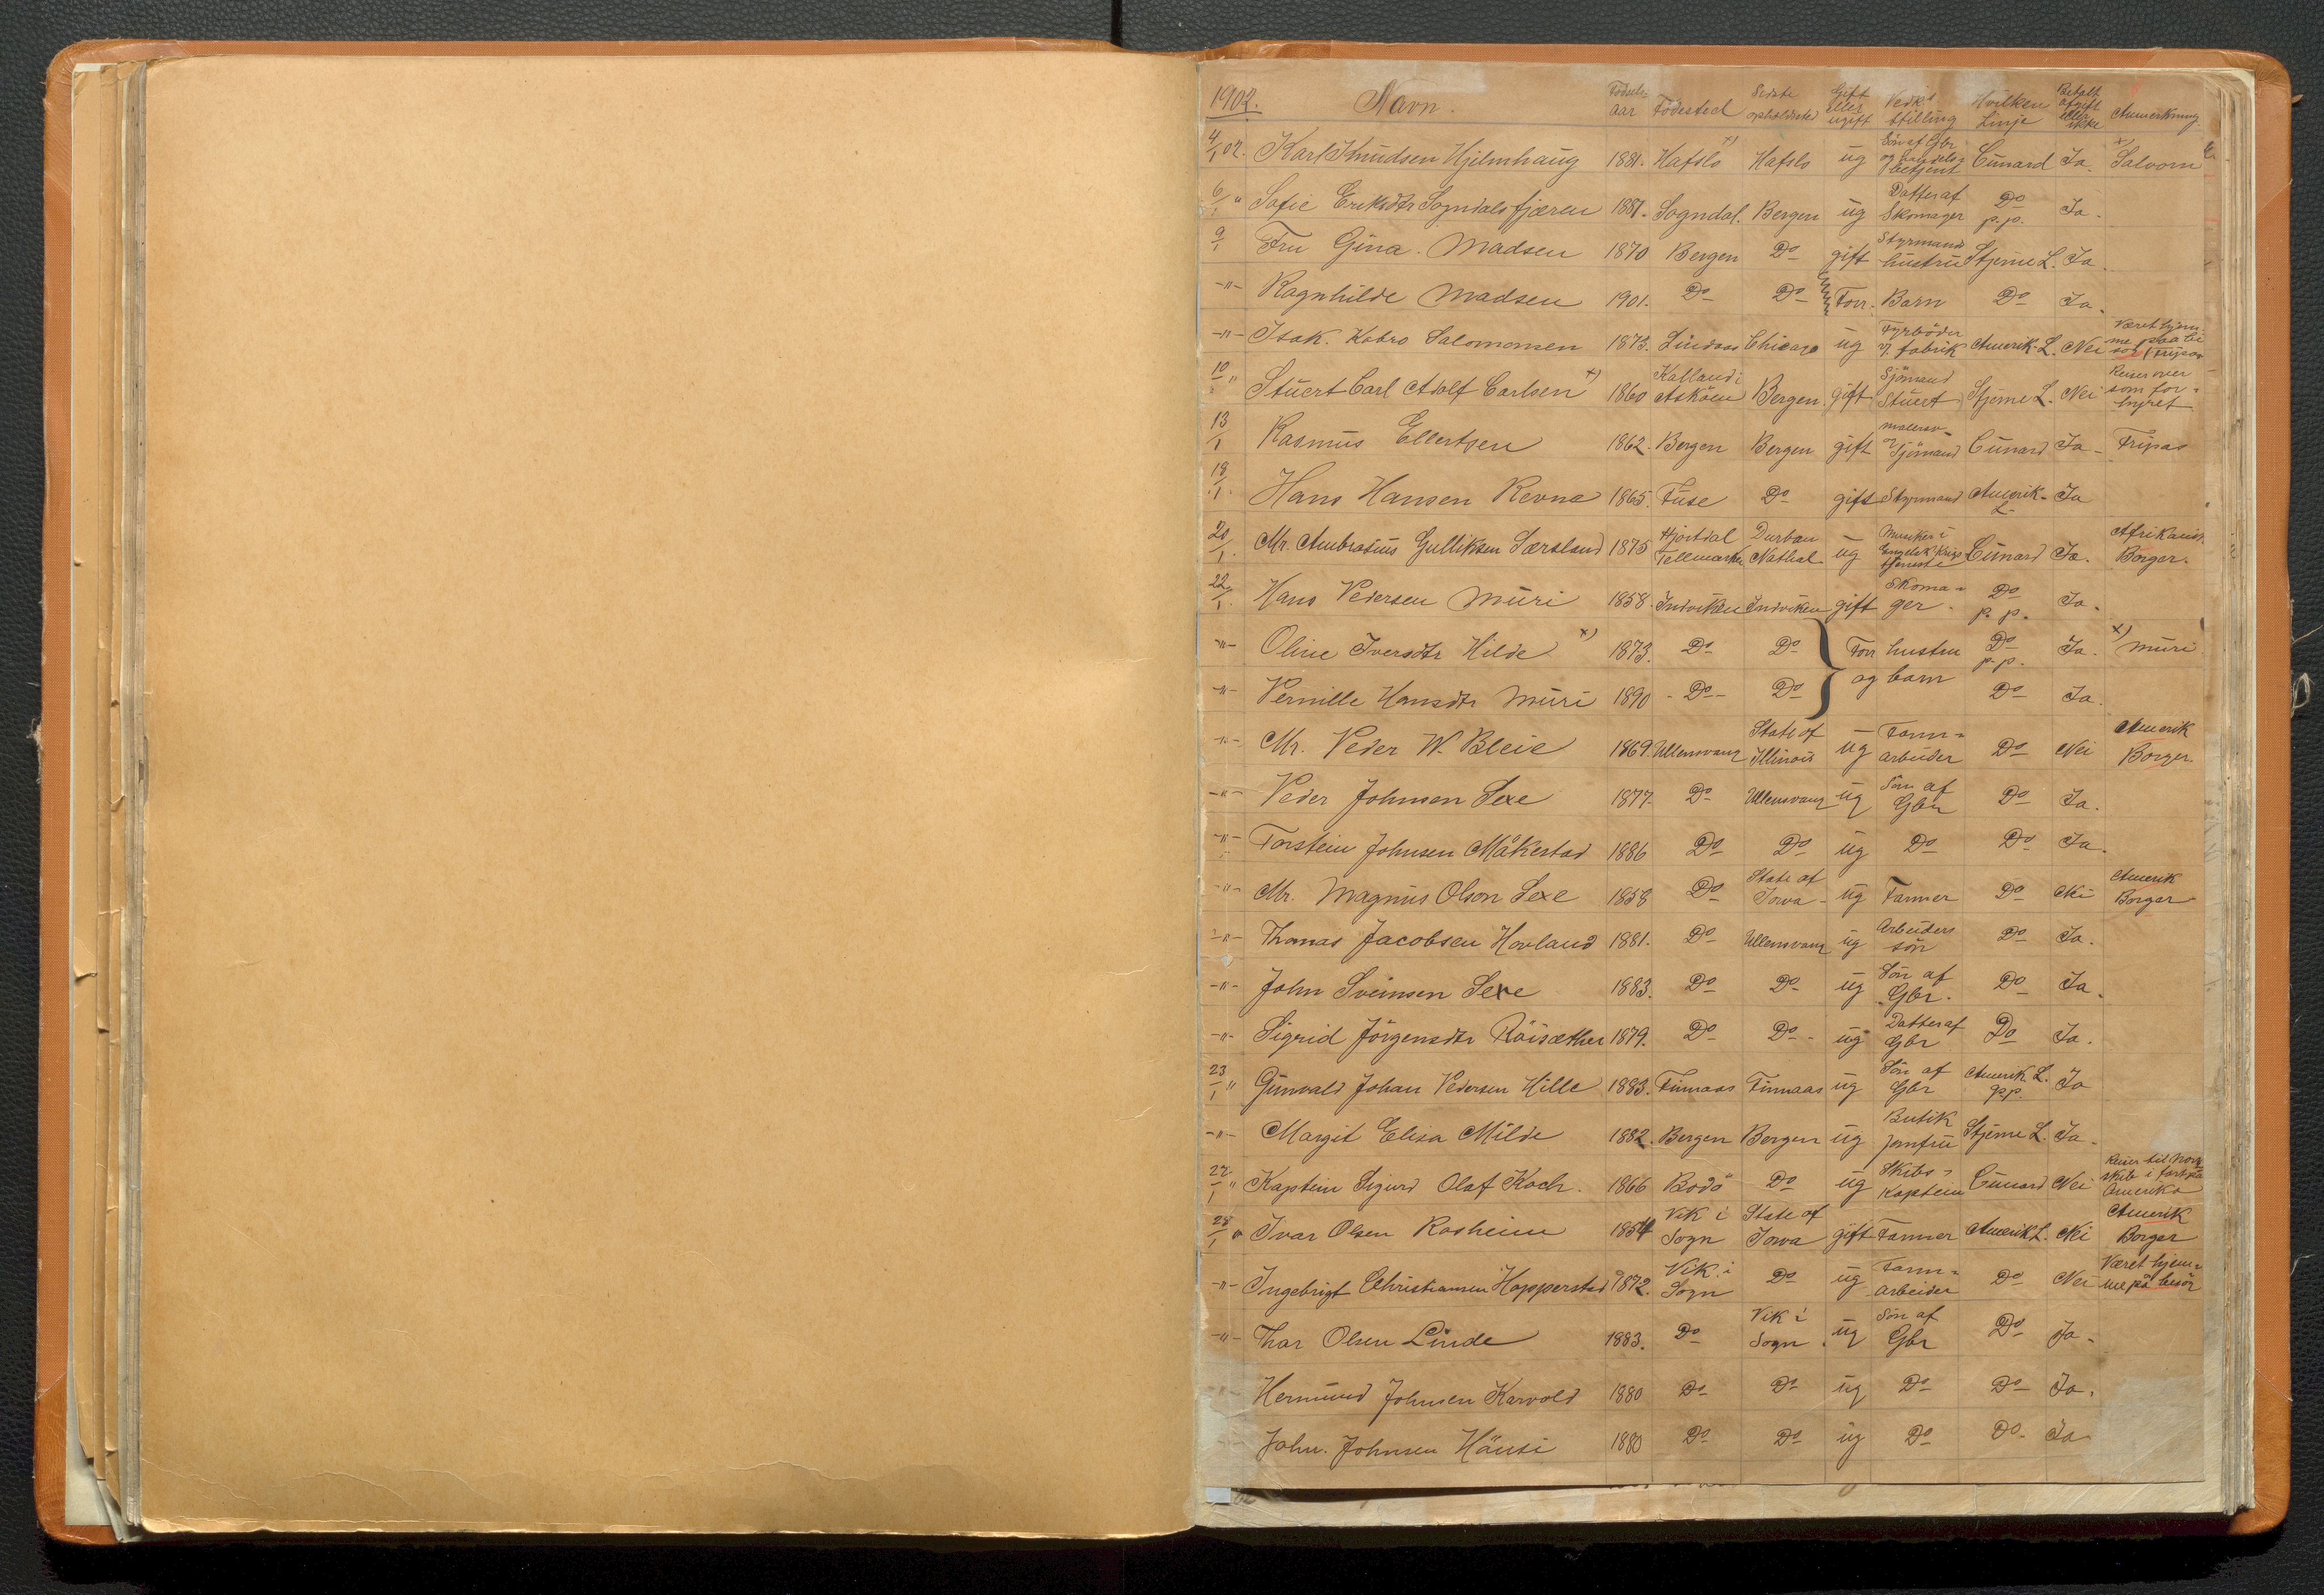 1902. Navn. Fødsels-aar Fødested Sidste opholdsted Gift eller ugift Vedk. stilling Hvilken Linje Betalt afgift eller ikke Anmerkning
4/1 02. Karl Knudsen Hjelmhaug 1881. Hafslo x) Hafslo ug Søn af Gbr og handels-betjent Cunard Ja. x) Salvorn
6/1 " Sofie Eriksdtr Sogndalsfjæren 1881. Sogndal. Bergen ug Datter af Skomager Do p.p. Ja.
9/1 Fru Gina. Madsen 1870 Bergen Do gift Styrmands hustru Stjerne L. Ja.
-"- Ragnhilde Madsen 1901. Do Do Forr. Barn Do Ja.
-"- Isak. Kobro Salomonsen 1873. Lindaas Chicago ug Fyrbøder v. fabrik Amerik. L. Nei Været hjem-me paa be søg Fripas
10/1 " Stuert Carl Adolf Carlsen x) 1860 Kalland i Askøen Bergen. gift Sjømand Stuert Stjerne L. Nei Reiser over som for-hyret
13/1 Rasmus Ellertsen 1862. Bergen Bergen gift malersv. og Sjømand Cunard Ja - Fripas
18/1 Hans Hansen Revne 1865. Fuse Do gift Styrmand Amerik. L. Ja
20/1. Mr. Ambrosius Gulliksen Særsland 1875 Hjortdal Tellemarken Durban Nathal ug Engelsk Krigs tjeneste Cunard Ja. Afrikansk Borger.
22/1. Hans Pedersen Muri 1858. Indviken Indviken gift Skoma-ger. Do p.p. Ja.
-"- Oline Iversdtr Hilde x) 1873. Do Do } Forr hustru Do p.p. Ja. x) Muri
-"- Pernille Hansdtr Muri 1890 - Do - Do } og barn Do Ja.
-"- Mr. Peder W. Bleie 1869. Ullensvang State of Illinois ug Farm-arbeider Do Nei Amerik Borger.
-"- Peder Johnsen Sexe 1877. Do Ullensvang ug Søn af Gbr Do Ja.
-"- Torstein Johnsen Måkestad 1886 Do Do ug Do Do Ja.
-"- Mr. Magnus Olson Sexe 1858 Do State of Iowa - ug Farmer Do Nei Amerik Borger
-"- Thomas Jacobsen Hovland 1881. Do Ullensvang ug Arbeiders søn Do Ja.
-"- John Sveinsen Sexe 1883. Do Do ug Søn af Gbr. Do Ja.
-"- Sigrid Jørgensdtr Røisæther 1879. Do Do - ug Datter af Gbr Do Ja.
23/1 " Gunvald Johan Pedersen Hille 1883. Finnaas Finnaas ug Søn af Gbr Amerik L. p.p. Ja
-"- Margit Elisa Milde 1882. Bergen Bergen ug Butik jomfru Stjerne L. Ja-
27/1 " Kaptein Sigurd Olaf Koch. 1866 Bodø Do ug Skibs-Kaptein Cunard Nei Reiser til Norsk skib i fart på Amerika
28/1 " Ivar Olsen Rosheim 1854 Vik i Sogn State of Iowa gift Farmer Amerik L. Nei Amerik Borger
-"- Ingebrigt Christiansen Hopperstad 1872. Vik i Sogn Do ug Farm-arbeider Do Nei Været hjem-me på besøg
-"- Thor Olsen Linde 1883. Do Vik i Sogn. ug Søn af Gbr Do Ja-
Hermund Johnsen Karvold 1880 Do Do ug Do Do Ja.
John. Johnsen Hönsi 1880 Do Do ug Do Do Ja